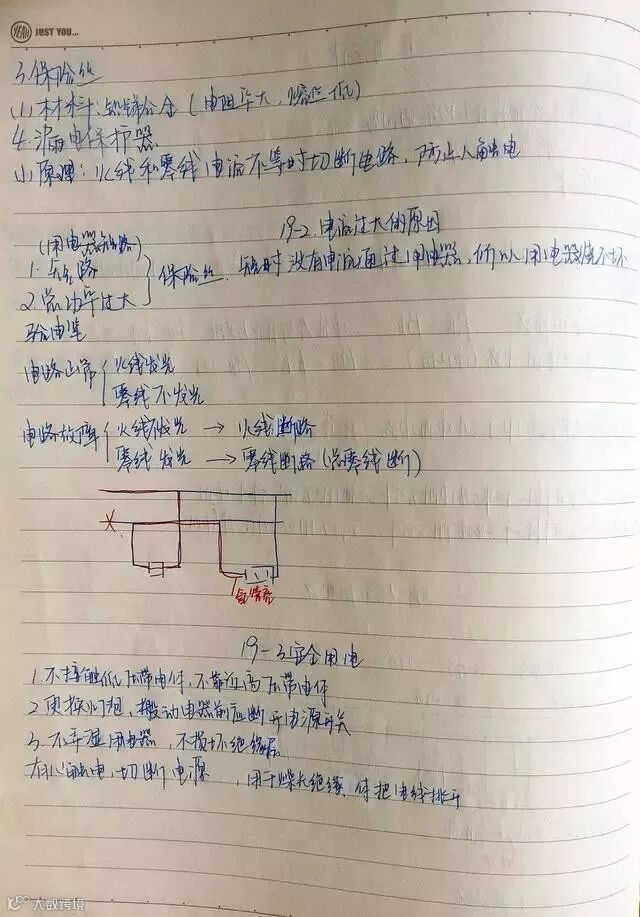 YEAH JUST YOU...
3.保险丝
(1) 材料:铅锑合金(电阻率大,熔点低)
4.漏电保护器
(1) 原理:火线和零线电流不等时切断电路,防止人触电
19-2.电流过大的原因
(用电器短路)
1.短路
2.总功率过大
保险丝.短路时没有电流通过用电器,所以用电器烧不坏
验电笔
电路正常 火线发光
零线不发光
电路故障 火线不发光 → 火线断路
零线发光 → 零线断路(总零线断)
X
氖管亮
19-3安全用电
1.不接触低压带电体,不靠近高压带电体
2.更换灯泡,搬动电器前应断开电源开关
3.不弄湿用电器,不损坏绝缘层
有人触电,切断电源,用干燥木绝缘体把电线挑开
大数跨境